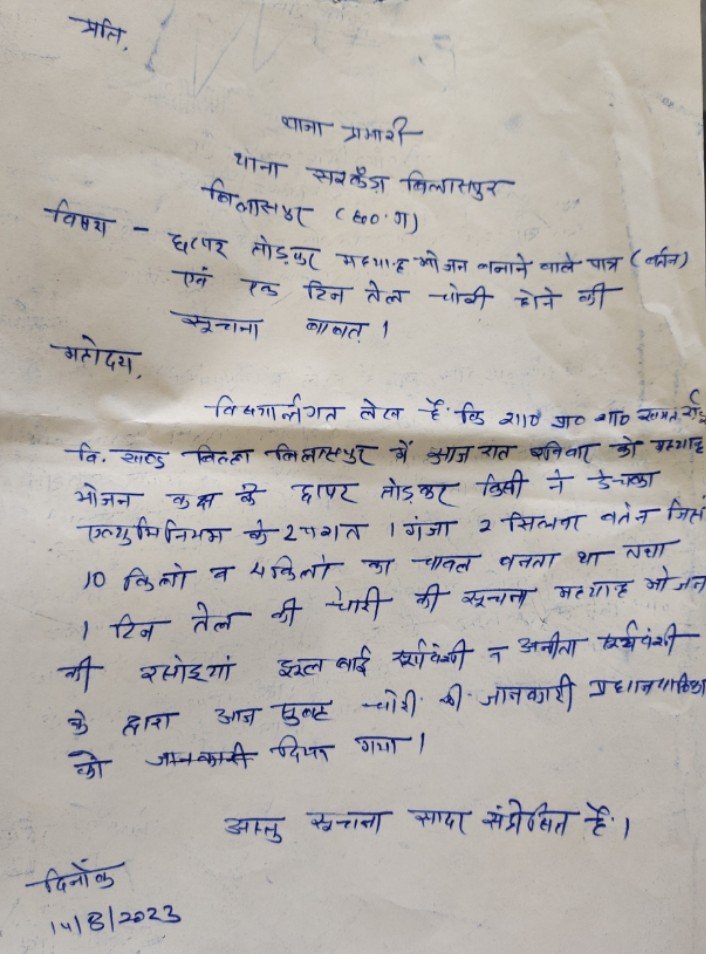 प्रति,
थाना प्रभारी
थाना सरकंडा बिलासपुर
बिलासपुर (छ०ग)
विषय - छप्पर तोड़कर मध्याह्न भोजन बनाने वाले पात्र (बर्तन)
एवं एक टिन तेल चोरी होने की
सूचना बाबत् ।
महोदय,
विषयान्तर्गत लेख है कि शा० प्रा० शा०
वि. खण्ड बिल्हा बिलासपुर में आज रात रविवार को मध्याह्न
भोजन कक्ष के छप्पर तोड़कर किसी ने डेचका
एल्युमिनियम के 2 परात 1 गंजा 2 सिलवर बर्तन जिसमें
10 किलो व 4 किलो का चावल बनता था तथा
1 टिन तेल की चोरी की सूचना मध्याह्न भोजन
की रसोइयां बाई सूर्यवंशी व अनीता सूर्यवंशी
के द्वारा आज सुबह चोरी की जानकारी
को जानकारी दिया गया ।
अस्तु सूचना सादर संप्रेषित है ।
दिनाँक
14/8/2023